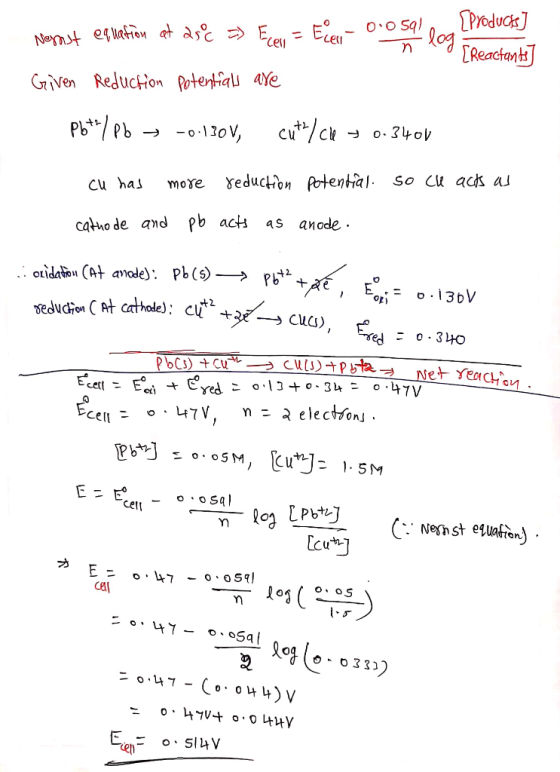 Nernst equation at 25°C ⇒ E cell = E° cell - 0.0591/n log [Products]/[Reactants]
Given Reduction potentials are
Pb+2/Pb → -0.130V, Cu+2/Cu → 0.340V
Cu has more reduction potential. So Cu acts as
cathode and pb acts as anode.
∴ oxidation (At anode): Pb(s) → Pb+2 + 2e, E°oxi = 0.130V
reduction (At cathode): Cu+2 + 2e → Cu(s), E°red = 0.340
Pb(s) + Cu+2 → Cu(s) + Pb+2 ⇒ Net reaction.
E°cell = E°oxi + E°red = 0.13 + 0.34 = 0.47V
E°cell = 0.47V, n = 2 electrons.
[Pb+2] = 0.05M, [Cu+2] = 1.5M
E = E°cell - 0.0591/n log [Pb+2]/[Cu+2] (∵ Nernst equation).
⇒ E cell = 0.47 - 0.0591/n log (0.05/1.5)
= 0.47 - 0.0591/2 log (0.0333)
= 0.47 - (0.044) V
= 0.47V + 0.044V
E cell = 0.514V